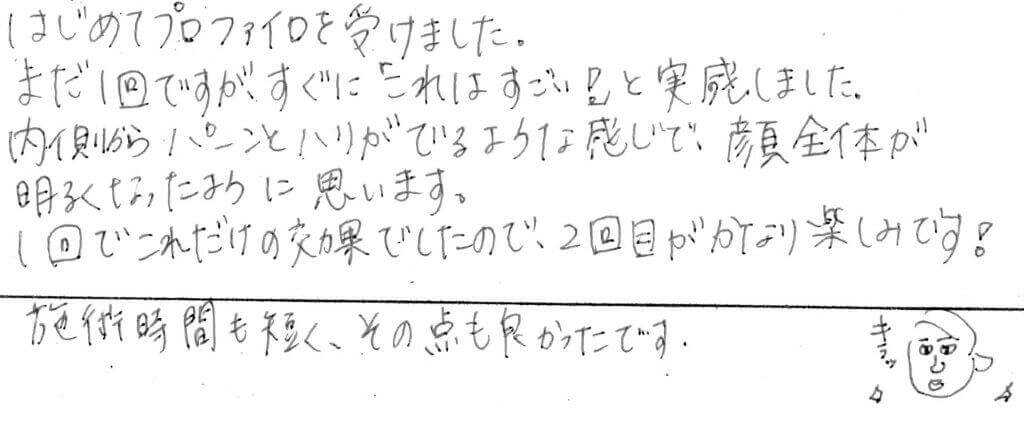 はじめてプロファイロを受けました。
まだ1回ですが、すぐに「これはすごい!」と実感しました。
内側からパーンとハリがでるような感じで、顔全体が
明るくなったように思います。
1回でこれだけの効果でしたので、2回目がかなり楽しみです!
施術時間も短く、その点も良かったです.
キラッ